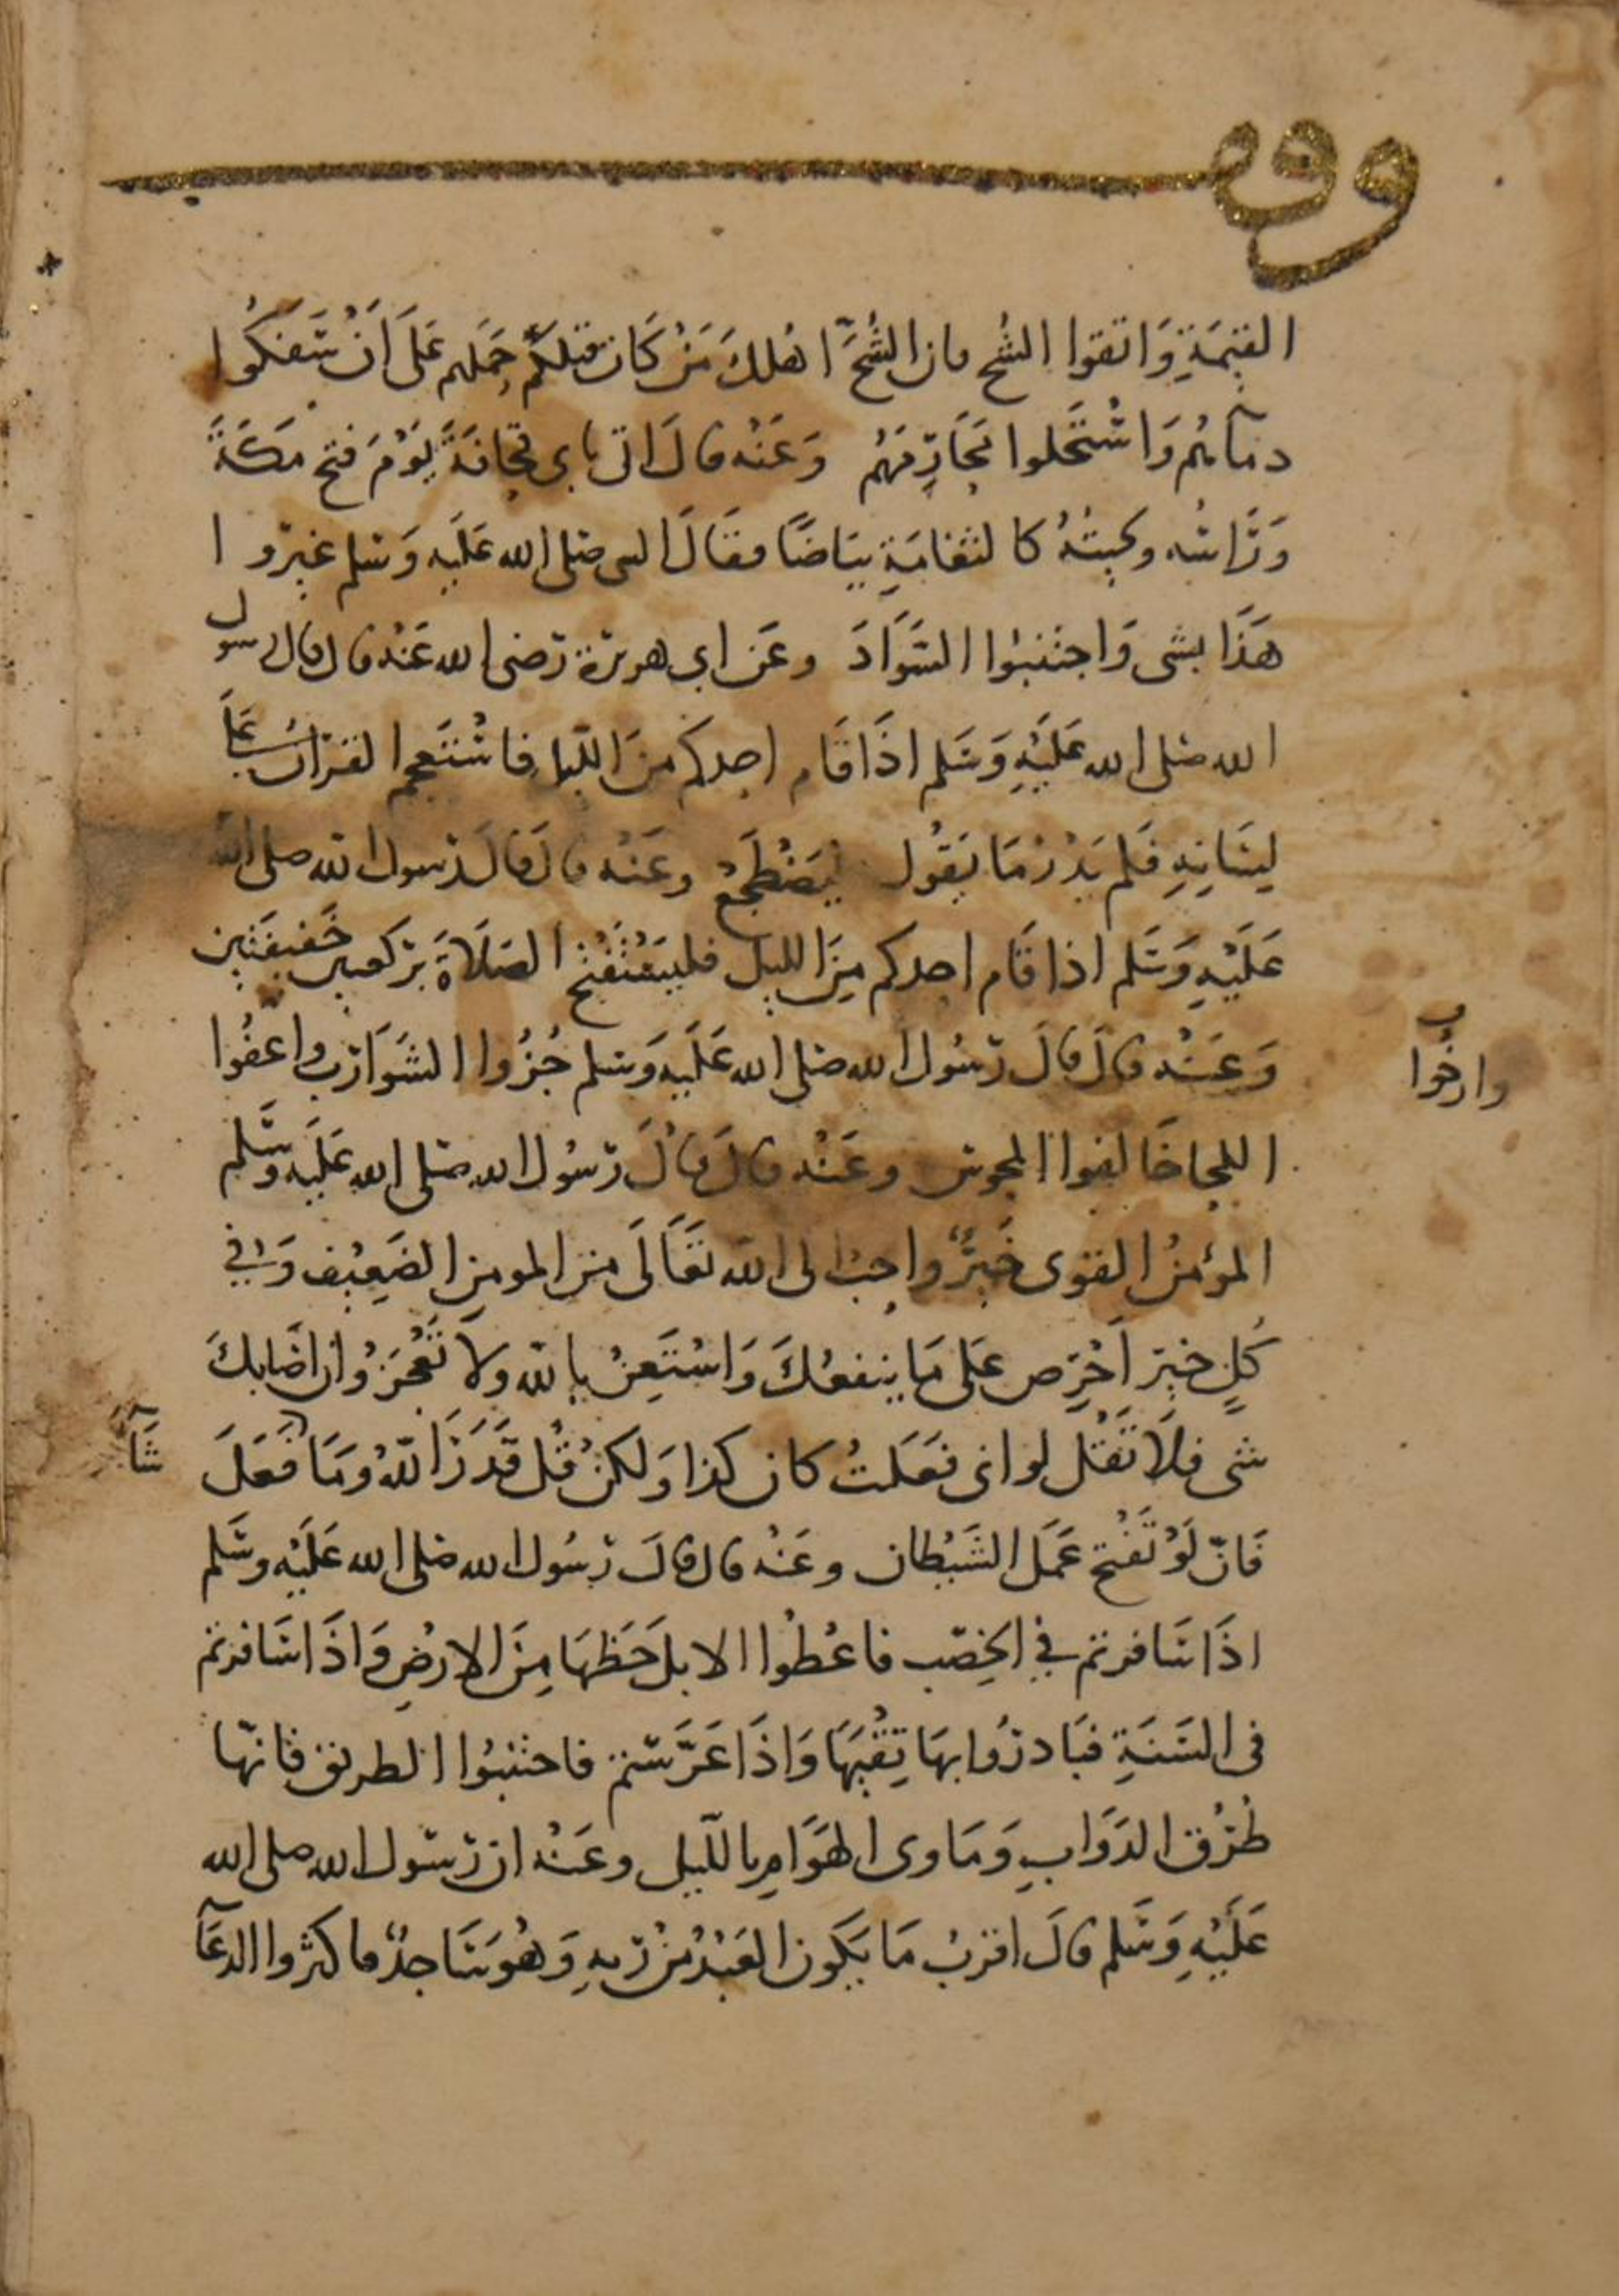 وقف
القيمَةِ وَاتقوا الشُح فان الشُحَّ اهلكَ مَنْ كَان قبلكم حَملهم عَلَى اَنْ سَفكُوا
دمآئهم وَاسْتَحلوا مَحَارِمَهُم وَعَنْه قالَ اتى بابى قحافَةَ يَوْمَ فتح مَكةَ
وَرَاسُه ولحيتُهُ كالثغامَةِ بيَاضًا فقَالَ النبى صلى الله عَلَيه وَسَلم غيِّروا
هَذَا بشى وَاجتنبُوا السَّوَادَ وعَن ابى هريرة رَضى الله عَنْه قال قال رسول
الله صَلى الله عَلَيْهِ وَسَلم اذَا قَام احدكم منَ اللّيل فاسْتَعجم القرآن عَلَى
لِسَانِهِ فَلم يَدْرْ مَا يَقُول فليَضْطَجعْ وعَنْه قالَ قالَ رَسول الله صلى الله
عَلَيْهِ وَسَلم اذا قَام احدكم مِنَ الليل فليَفْتَتِح الصَلاةَ بركعتين خَفيفَتَين
وَعَنْه قالَ قالَ رَسُول الله صَلى الله عَلَيه وَسلم جُزُوا الشوَارب واعْفُوا
وارخُوا
اللحا خَالفوا المجوس وعَنْه قالَ قالَ رَسُول الله صَلى الله عَلَيه وَسَّلم
المؤمنُ القوى خَيرٌ واحَب الى الله تعَالَى من المومنِ الضَعِيْف وَفِي
كُلٍ خيرٍ اَحْرِص عَلى مَا ينفعُكَ وَاسْتَعِنْ بالله ولا تَعْجَزْ وان اصَابكَ
شى فلاَ تَقُل لو انى فعَلتُ كان كذا وَلكنْ قُل قَدَرَ اللهُ وَمَا فعَلَ
شَآءَ
فَانّ لَوْ تَفْتح عَمَل الشَيْطان وعَنْه قال قالَ رَسُول الله صَلى الله عَلَيْه وسَلم
اذَا سَافرتم فِي الخِصْب فاعْطُوا الابل حَظهَا مِنَ الارْضِ وَاذَا سَافرتم
فى السَنَةِ فبَادرُوا بهَا نِقْيَهَا وَاذَا عَرَّسْتم فاجتنبُوا الطريق فانهّا
طُرُق الدَوَابِ وَمَاوى الهَوَامِ باللّيل وعَنْه ان رَسول الله صلى الله
عَلَيْهِ وَسَلم قالَ اقربُ مَا يَكون العَبْدُ مِنْ رَبهِ وَهُوَ سَاجدٌ فاكثروا الدعَآ